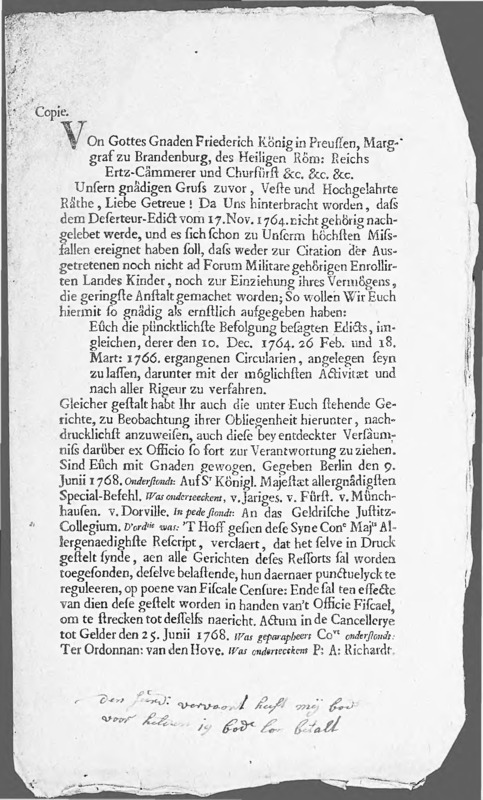 Copie.
VOn Gottes Gnaden Friederich König in Preuſſen, Marg-
graf zu Brandenburg, des Heiligen Röm: Reichs
Ertz-Câmmerer und Churfürſt &c. &c. &c.
Unſern gnâdigen Gruſs zuvor, Veſte und Hochgelahrte
Râthe, Liebe Getreue! Da Uns hinterbracht worden, daſs
dem Deſerteur-Edict vom 17. Nov. 1764. nicht gehörig nach-
gelebet werde, und es ſich ſchon zu Unſerm höchſten Miſs-
fallen ereignet haben ſoll, daſs weder zur Citation der Aus-
getretenen noch nicht ad Forum Militare gehörigen Enrollir-
ten Landes Kinder, noch zur Einziehung ihres Vermögens,
die geringſte Anſtalt gemachet worden; So wollen Wir Euch
hiermit ſo gnâdig als ernſtlich aufgegeben haben:
Eûch die pûncktlichſte Befolgung beſagten Edicts, im-
gleichen, derer den 10. Dec. 1764. 26 Feb. und 18.
Mart: 1766. ergangenen Circularien, angelegen ſeyn
zu laſſen, darunter mit der möglichſten Activitæt und
nach aller Rigeur zu verfahren.
Gleicher geſtalt habt Ihr auch die unter Euch ſtehende Ge-
richte, zu Beobachtung ihrer Obliegenheit hierunter, nach-
drucklichſt anzuweiſen, auch dieſe bey entdeckter Verſâum-
niſs darûber ex Officio ſo fort zur Verantwortung zu ziehen.
Sind Eûch mit Gnaden gewogen. Gegeben Berlin den 9.
Junii 1768. Onderſtondt: Auf Sr Königl. Majeſtæt allergnâdigſten
Special-Befehl. Was onderteeckent, v. Jariges. v. Fûrſt. v. Mûnch-
hauſen. v. Dorville. In pede ſtondt: An das Geldriſche Juſtitz-
Collegium. D'ordtie was: 'T Hoff geſien deſe Syne Cone Majts Al-
lergenaedighſte Reſcript, verclaert, dat het ſelve in Druck
geſtelt ſynde, aen alle Gerichten deſes Reſſorts ſal worden
toegeſonden, deſelve belaſtende, hun daernaer punctuelyck te
reguleeren, op poene van Fiſcale Cenſure: Ende ſal ten effecte
van dien deſe geſtelt worden in handen van't Officie Fiſcael,
om te ſtrecken tot deſſelfs naericht. Actum in de Cancellerye
tot Gelder den 25. Junii 1768. Was geparapheert Covt onderſtondt:
Ter Ordonnan: van den Hove. Was onderteeckent P: A: Richardt.
den heeft mij
voor betalt